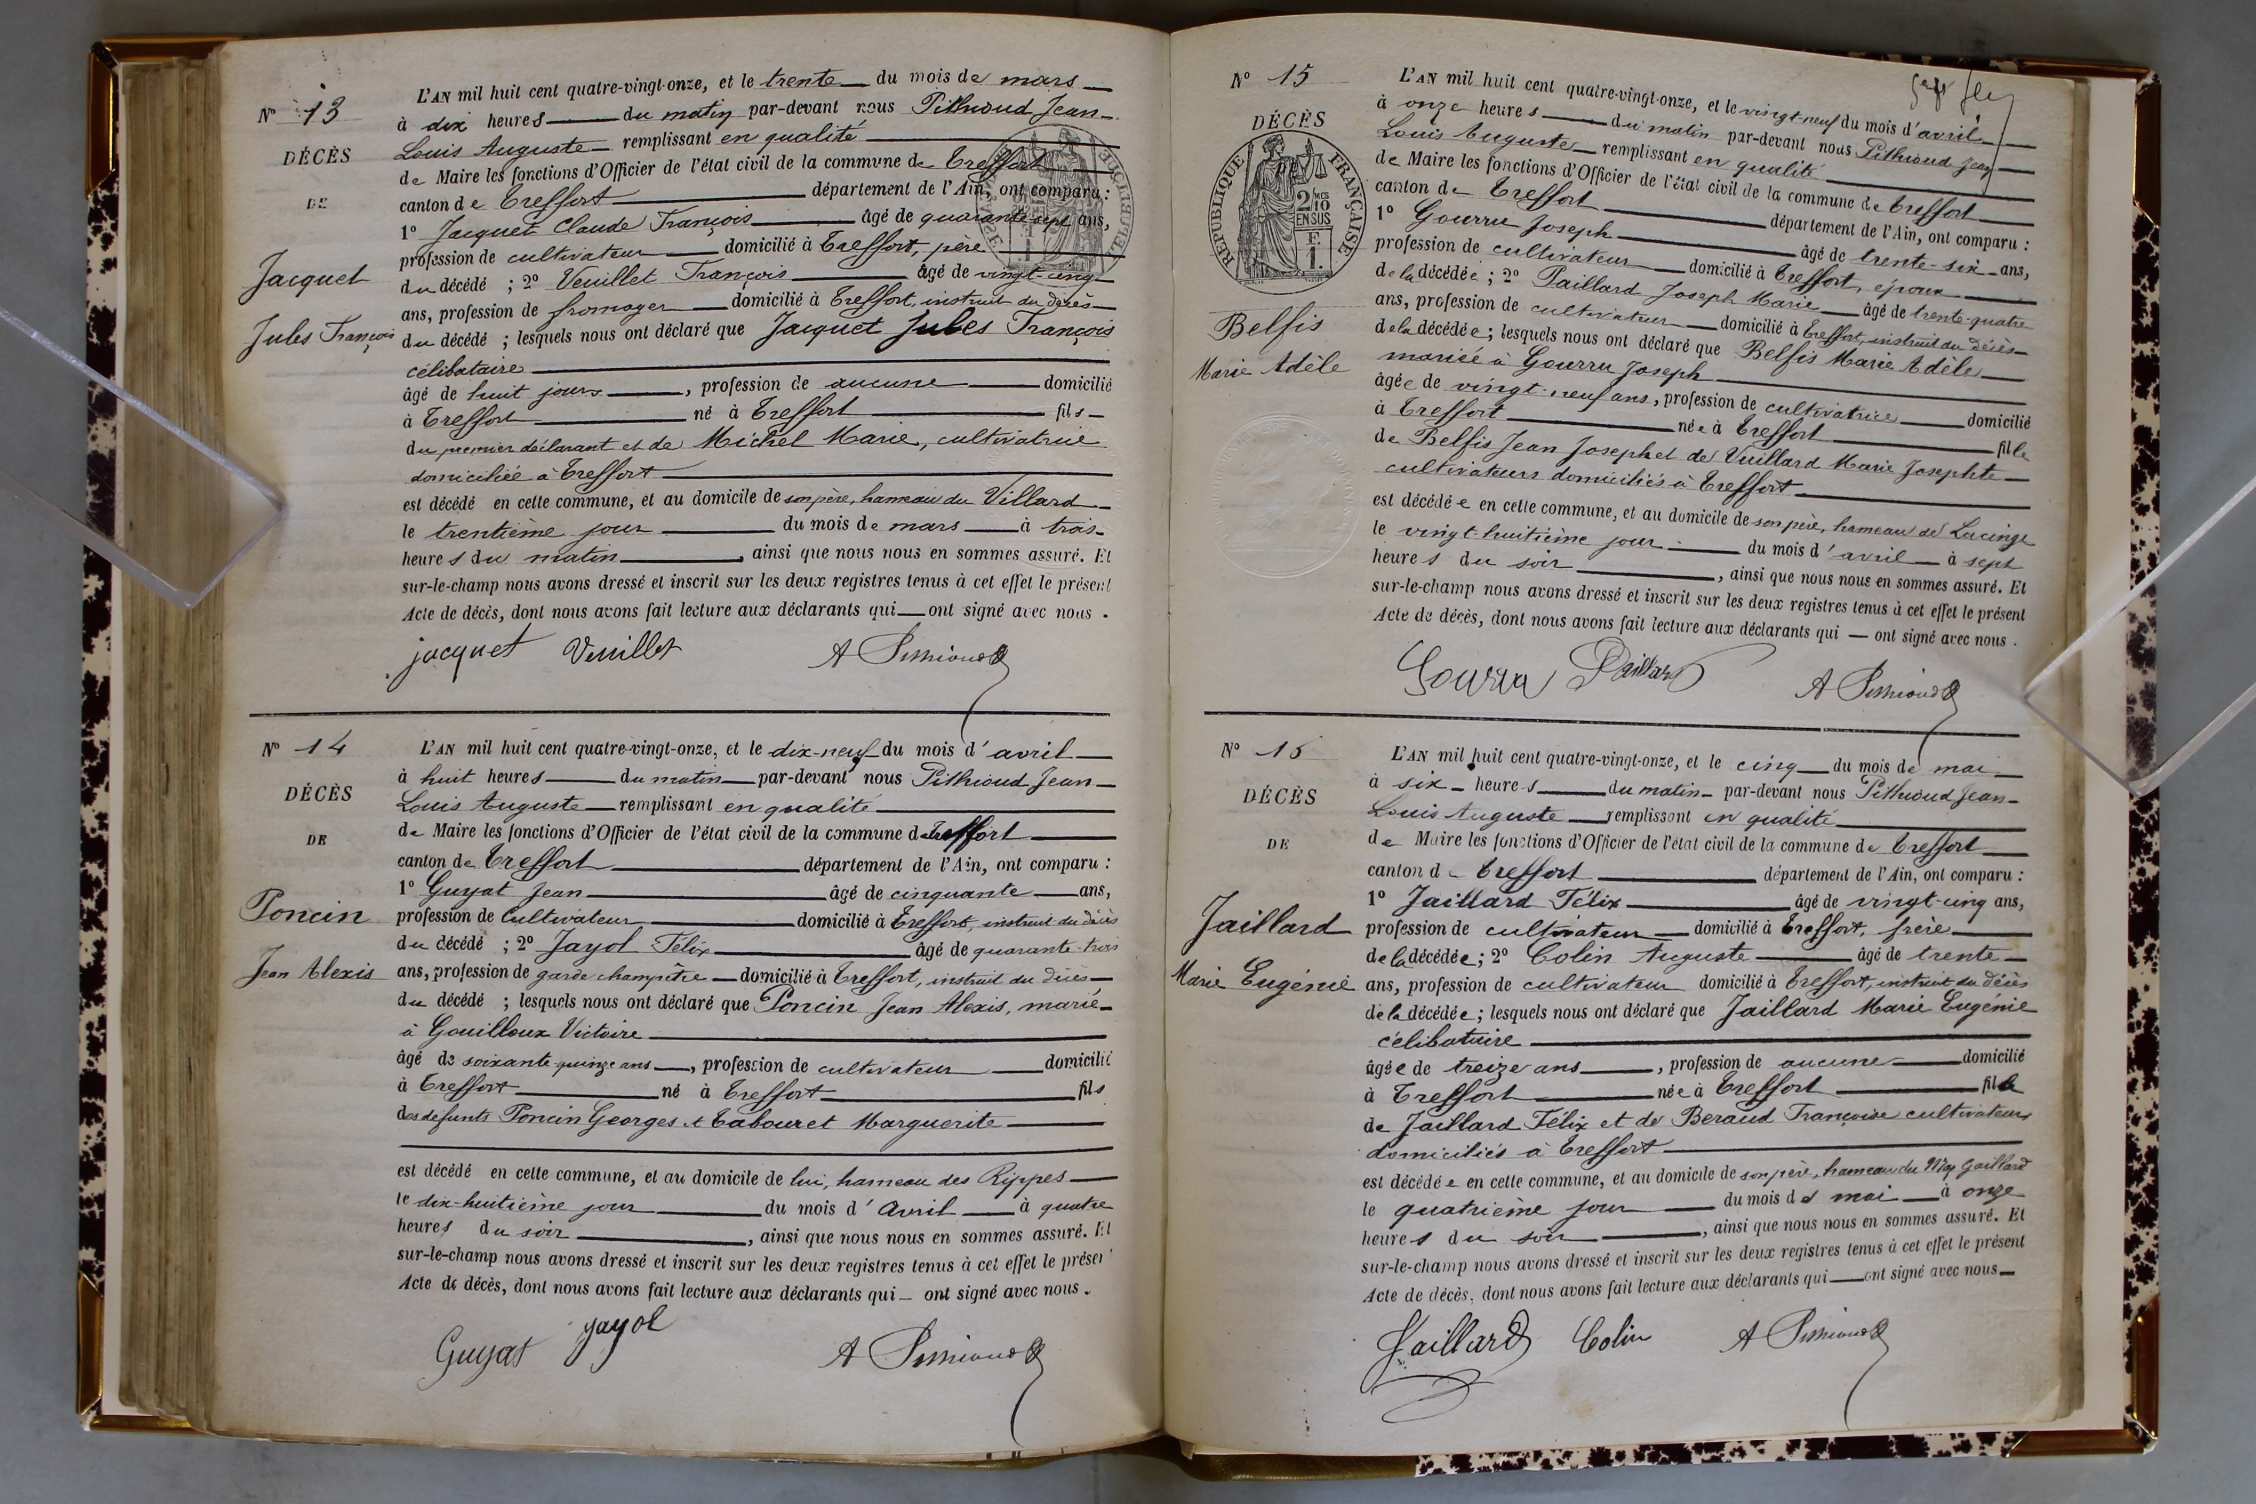 N° 13
DÉCÈS
DE
Jacquet
Jules François
L'AN mil huit cent quatre-vingt-onze, et le trente du mois de mars
à dix heures du matin par-devant nous Pithioud Jean-
Louis Auguste remplissant en qualité
de Maire les fonctions d'Officier de l'état civil de la commune de Treffort
canton de Treffort département de l'Ain, ont comparu :
1° Jacquet Claude François âgé de quarante-sept ans,
profession de cultivateur domicilié à Treffort, père
du décédé ; 2° Veuillet François âgé de vingt-cinq
ans, profession de fromager domicilié à Treffort, instruit du décès
du décédé ; lesquels nous ont déclaré que Jacquet Jules François
célibataire
âgé de huit jours, profession de aucune domicilié
à Treffort né à Treffort fils
du premier déclarant et de Michel Marie, cultivatrice
domiciliée à Treffort
est décédé en cette commune, et au domicile de son père, hameau du Villard
le trentième jour du mois de mars à trois
heures du matin, ainsi que nous nous en sommes assuré. Et
sur-le-champ nous avons dressé et inscrit sur les deux registres tenus à cet effet le présent
Acte de décès, dont nous avons fait lecture aux déclarants qui ont signé avec nous.
jacquet Veuillet A Pithioud
N° 14
DÉCÈS
DE
Poncin
Jean Alexis
L'AN mil huit cent quatre-vingt-onze, et le dix-neuf du mois d'avril
à huit heures du matin par-devant nous Pithioud Jean-
Louis Auguste remplissant en qualité
de Maire les fonctions d'Officier de l'état civil de la commune de Treffort
canton de Treffort département de l'Ain, ont comparu :
1° Guyat Jean âgé de cinquante ans,
profession de cultivateur domicilié à Treffort, instruit du décès
du décédé ; 2° Jayol Félix âgé de quarante-trois
ans, profession de garde champêtre domicilié à Treffort, instruit du décès
du décédé ; lesquels nous ont déclaré que Poncin Jean Alexis, marié
à Gouilloux Victoire
âgé de soixante-quinze ans, profession de cultivateur domicilié
à Treffort né à Treffort fils
des défunts Poncin Georges et Tabouret Marguerite
est décédé en cette commune, et au domicile de lui, hameau des Rippes
le dix-huitième jour du mois d'Avril à quatre
heures du soir, ainsi que nous nous en sommes assuré. Et
sur-le-champ nous avons dressé et inscrit sur les deux registres tenus à cet effet le présent
Acte de décès, dont nous avons fait lecture aux déclarants qui ont signé avec nous.
Guyat Jayol A Pithioud
N° 15
DÉCÈS
RÉPUBLIQUE FRANÇAISE
2/10 EN SUS
F. 1.
Belfis
Marie Adèle
L'AN mil huit cent quatre-vingt-onze, et le vingt-neuf du mois d'avril
à onze heures du matin par-devant nous Pithioud Jean
Louis Auguste remplissant en qualité
de Maire les fonctions d'Officier de l'état civil de la commune de Treffort
canton de Treffort département de l'Ain, ont comparu :
1° Gourru Joseph âgé de trente-six ans,
profession de cultivateur domicilié à Treffort, époux
de la décédée ; 2° Paillard Joseph Marie âgé de trente-quatre
ans, profession de cultivateur domicilié à Treffort, instruit du décès
de la décédée ; lesquels nous ont déclaré que Belfis Marie Adèle
mariée à Gourru Joseph
âgée de vingt-neuf ans, profession de cultivatrice domicilié
à Treffort née à Treffort fille
de Belfis Jean Joseph et de Vuillard Marie Josephte
cultivateurs domiciliés à Treffort
est décédée en cette commune, et au domicile de son père, hameau de Lucinge
le vingt-huitième jour du mois d'avril à sept
heures du soir, ainsi que nous nous en sommes assuré. Et
sur-le-champ nous avons dressé et inscrit sur les deux registres tenus à cet effet le présent
Acte de décès, dont nous avons fait lecture aux déclarants qui ont signé avec nous.
Gourru Paillard A Pithioud
N° 16
DÉCÈS
DE
Jaillard
Marie Eugénie
L'AN mil huit cent quatre-vingt-onze, et le cinq du mois de mai
à six heures du matin par-devant nous Pithioud Jean-
Louis Auguste remplissant en qualité
de Maire les fonctions d'Officier de l'état civil de la commune de Treffort
canton de Treffort département de l'Ain, ont comparu :
1° Jaillard Félix âgé de vingt-cinq ans,
profession de cultivateur domicilié à Treffort, frère
de la décédée ; 2° Colin Auguste âgé de trente
ans, profession de cultivateur domicilié à Treffort, instruit du décès
de la décédée ; lesquels nous ont déclaré que Jaillard Marie Eugénie
célibataire
âgée de treize ans, profession de aucune domicilié
à Treffort née à Treffort fille
de Jaillard Félix et de Beraud Françoise cultivateurs
domiciliés à Treffort
est décédée en cette commune, et au domicile de son père, hameau du Gaillard
le quatrième jour du mois de mai à onze
heures du soir, ainsi que nous nous en sommes assuré. Et
sur-le-champ nous avons dressé et inscrit sur les deux registres tenus à cet effet le présent
Acte de décès, dont nous avons fait lecture aux déclarants qui ont signé avec nous
Jaillard Colin A Pithioud